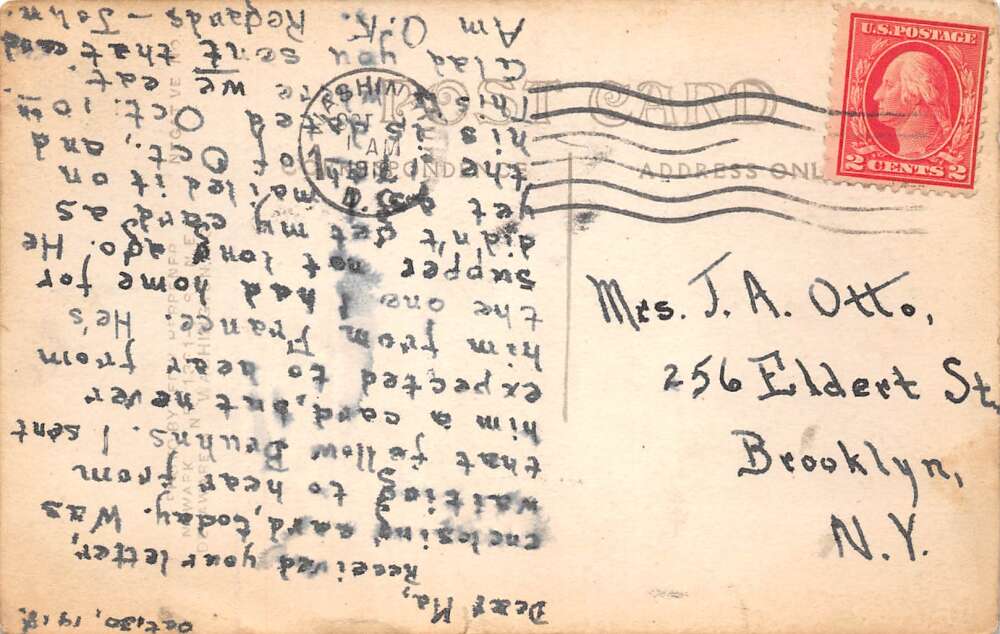 POST CARD
CORRESPONDENCE
ADDRESS ONLY
U.S. POSTAGE
2 CENTS 2
WASHIN
1 AM
1918
D.C.
Mrs. J. A. Otto,
256 Eldert St.
Brooklyn,
N.Y.
Oct. 30, 1918.
Dear Ma,
Received your letter,
enclosing card, today. Was
waiting to hear from
that fellow Bruhns. I sent
him a card, but never
expected to hear from
him from France. He's
the one I had home for
supper not long ago. He
didn't get my card as
yet as I mailed it on
the of Oct., and
his is dated Oct. 10th
This is where we eat.
Glad you sent that card
Am O.K. Regards – John.